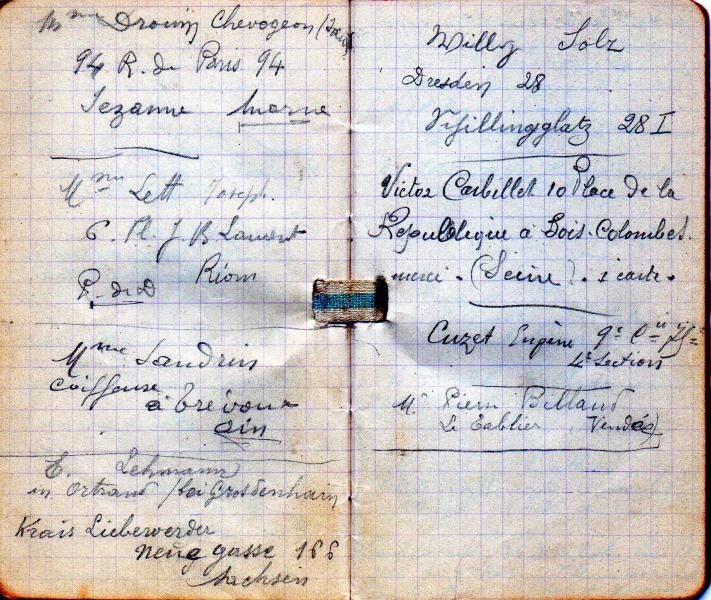 Mme Drouin Chevogeon
94 R. de Paris 94
Sezanne Marne
Mme Lett Joseph.
6. Pl. J B Laurent
P. de D Riom
Mme Landrin
Coiffeuse
à Trévoux
Ain
E. Lehmann
in Ortrand / bei Grosdenhain
Krais Lieberwerder
neue gasse 166
Sachsen
Willy Solz
Dresden 28
Schillingplatz 28 I
Victor Carbillet 10 Place de la
Republique a Bois-Colombes.
merci. (Seine). 1 carte.
Cuzet Eugène 9e Cie
4e Section
Mr Pierre Billaud
Le Tablier (Vendée)